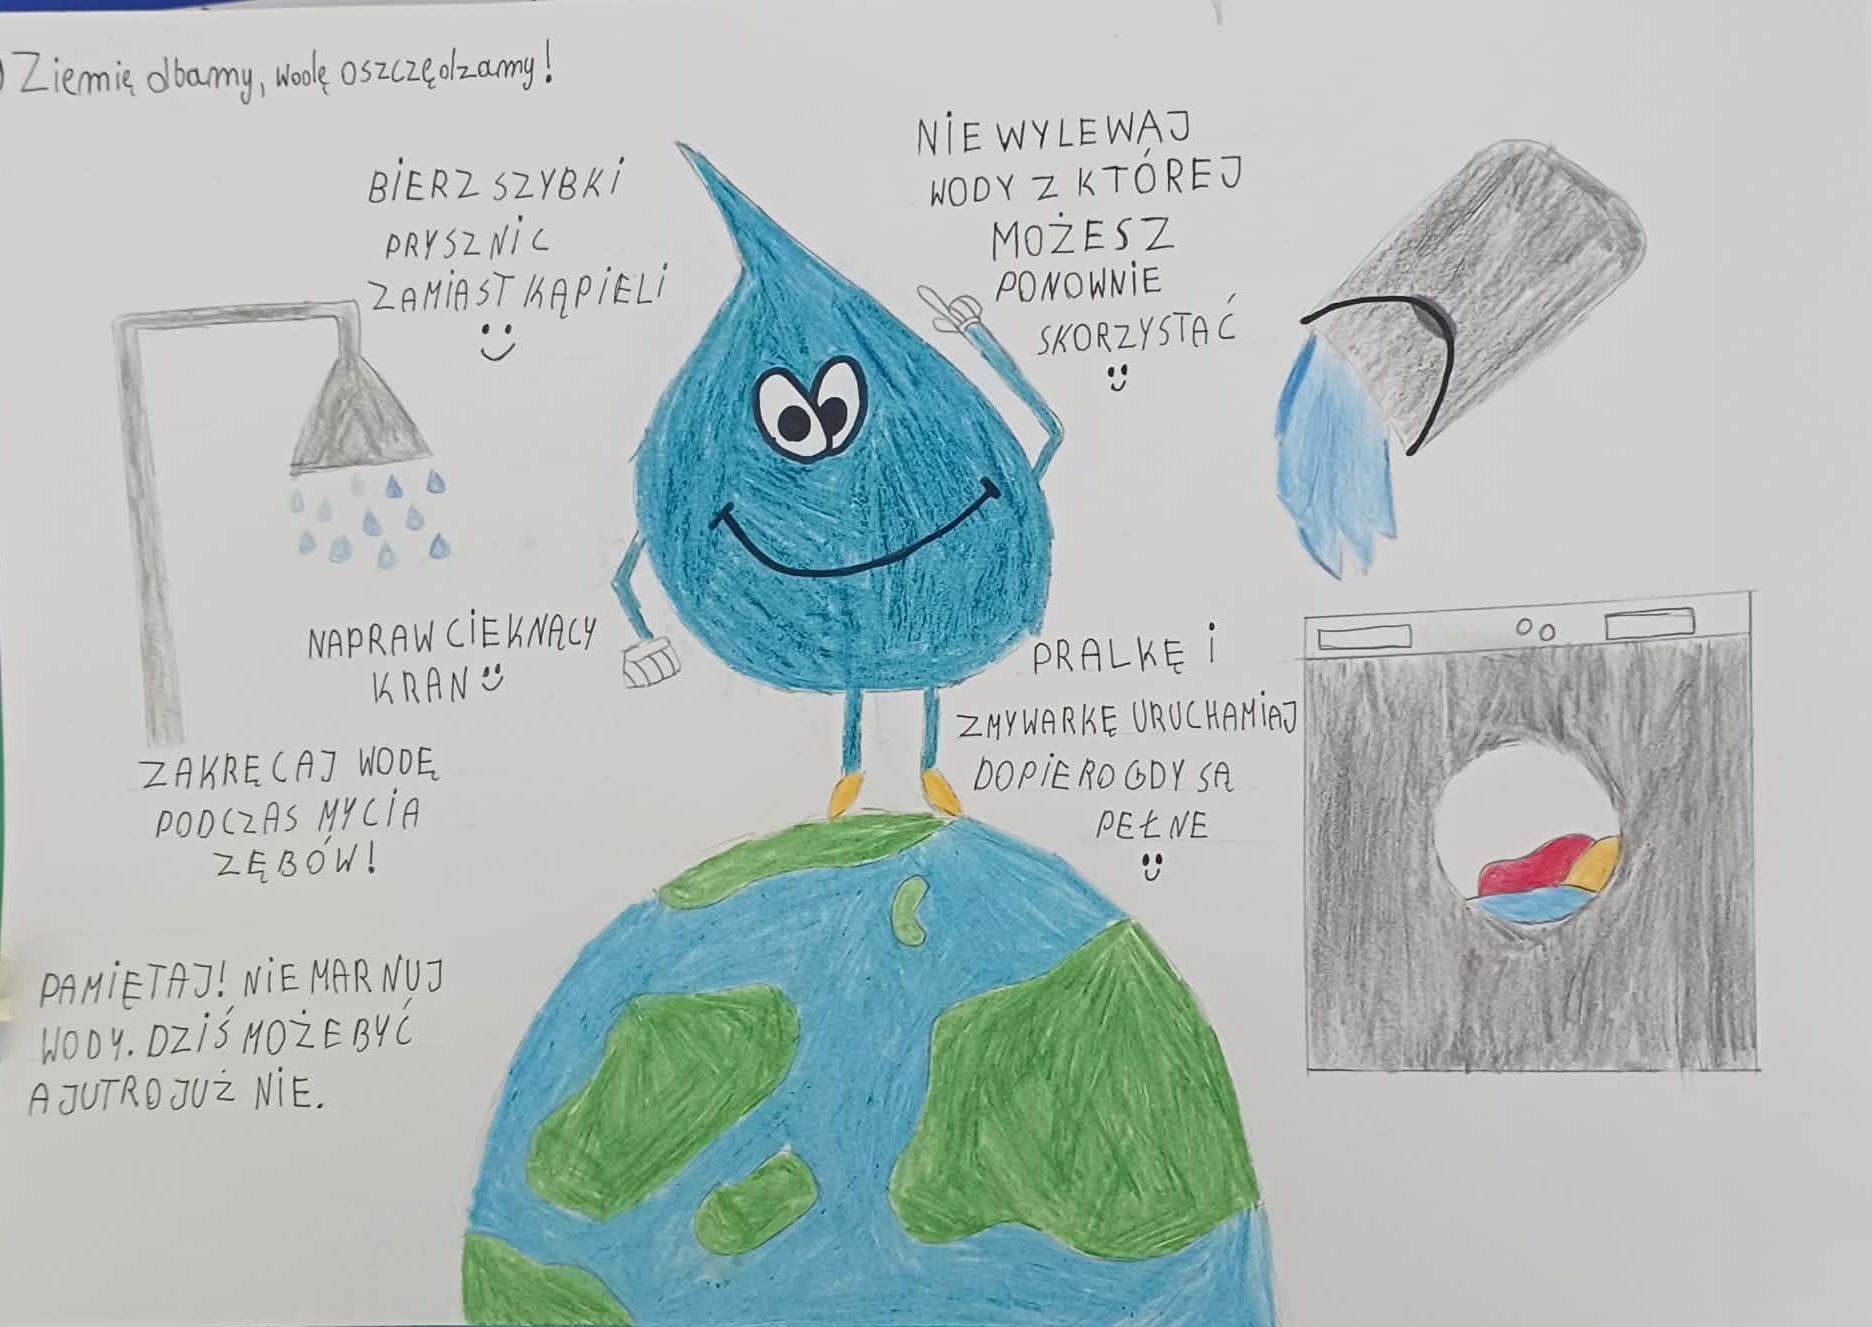 O Ziemię dbamy, wodę oszczędzamy!
BIERZ SZYBKI
PRYSZNIC
ZAMIAST KĄPIELI
NIE WYLEWAJ
WODY Z KTÓREJ
MOŻESZ
PONOWNIE
SKORZYSTAĆ
NAPRAW CIEKNĄCY
KRAN
ZAKRĘCAJ WODĘ
PODCZAS MYCIA
ZĘBÓW!
PRALKĘ I
ZMYWARKĘ URUCHAMIAJ
DOPIERO GDY SĄ
PEŁNE
PAMIĘTAJ! NIE MARNUJ
WODY. DZIŚ MOŻE BYĆ
A JUTRO JUŻ NIE.